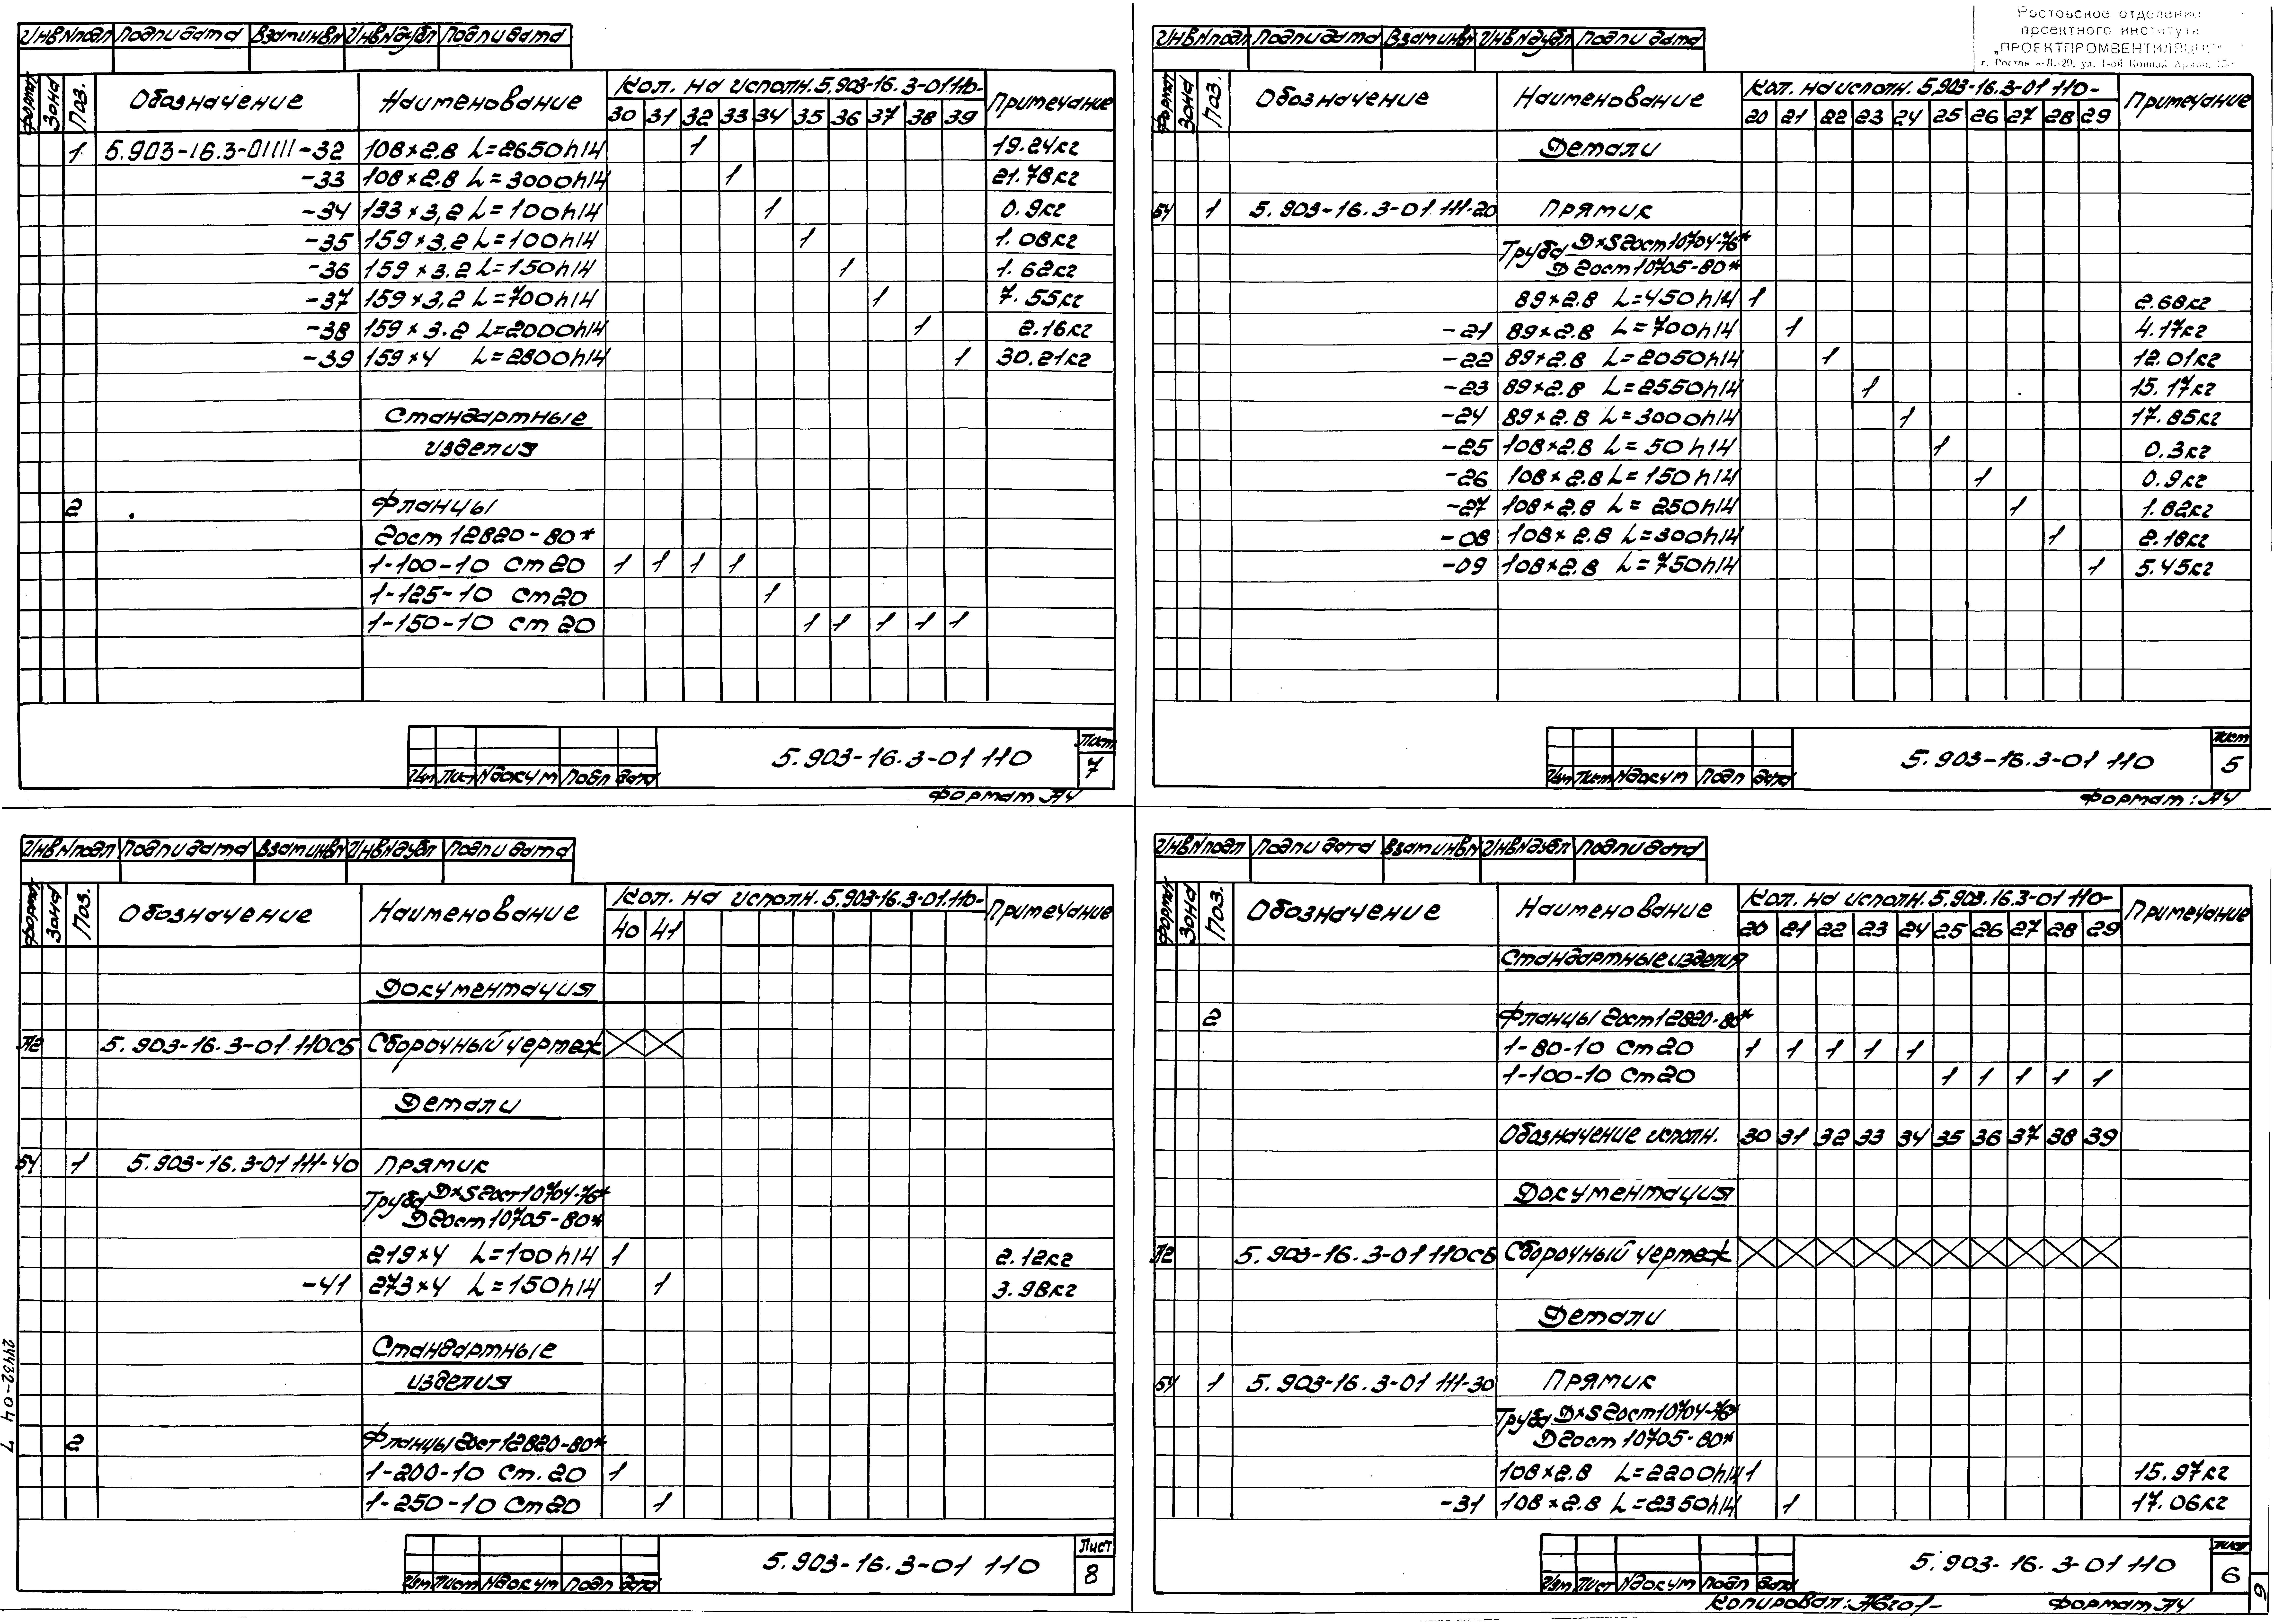 Инв N подл Подп и дата Взам инв N Инв N дубл Подп и дата
Формат Зона Поз. Обозначение Наименование Кол. на исполн. 5.903-16.3-01 110- Примечание
30 31 32 33 34 35 36 37 38 39
1 5.903-16.3-01111-32 108×2.8 L=2650h14 1 19.24кг
-33 108×2.8 L=3000h14 1 21.78кг
-34 133×3,2 L=100h14 1 0.9кг
-35 159×3.2 L=100h14 1 1.08кг
-36 159×3.2 L=150h14 1 1.62кг
-37 159×3,2 L=700h14 1 7.55кг
-38 159×3.2 L=2000h14 1 2.16кг
-39 159×4 L=2800h14 1 30.21кг
Стандартные
изделия
2 Фланцы
Гост 12820-80*
1-100-10 Ст20 1 1 1 1
1-125-10 Ст20 1
1-150-10 Ст20 1 1 1 1 1
5.903-16.3-01 110 Лист 7
Изм Лист N докум Подп Дата
Формат А4
Ростовское отделение
проектного института
„ПРОЕКТПРОМВЕНТИЛЯЦИЯ"
Инв N подл Подп и дата Взам инв N Инв N дубл Подп и дата
Формат Зона Поз. Обозначение Наименование Кол. на исполн. 5.903-16.3-01 110- Примечание
20 21 22 23 24 25 26 27 28 29
Детали
БЧ 1 5.903-16.3-01 111-20 Прямик
Труба D×S Гост 10704-76*
Д Гост 10705-80*
89×2.8 L=450h14 1 2.68кг
-21 89×2.8 L=700h14 1 4.17кг
-22 89×2.8 L=2050h14 1 12.01кг
-23 89×2.8 L=2550h14 1 15.17кг
-24 89×2.8 L=3000h14 1 17.85кг
-25 108×2.8 L=50h14 1 0.3кг
-26 108×2.8 L=150h14 1 0.9кг
-27 108×2.8 L=250h14 1 1.82кг
-08 108×2.8 L=300h14 1 2.18кг
-09 108×2.8 L=750h14 1 5.45кг
5.903-16.3-01 110 Лист 5
Изм Лист N докум Подп Дата
Формат: А4
Инв N подл Подп и дата Взам инв N Инв N дубл Подп и дата
Формат Зона Поз. Обозначение Наименование Кол. на исполн. 5.903-16.3-01.110- Примечание
40 41
Документация
А2 5.903-16.3-01 110СБ Сборочный чертеж
Детали
БЧ 1 5.903-16.3-01 111-40 Прямик
Труба D×S Гост 10704-76*
Д Гост 10705-80*
219×4 L=100h14 1 2.12кг
-41 273×4 L=150h14 1 3.98кг
Стандартные
изделия
2 Фланцы Гост 12820-80*
1-200-10 Ст.20 1
1-250-10 Ст20 1
5.903-16.3-01 110 Лист 8
Изм Лист N докум Подп Дата
24432-04 7
Инв N подл Подп и дата Взам инв N Инв N дубл Подп и дата
Формат Зона Поз. Обозначение Наименование Кол. на исполн. 5.903.16.3-01 110- Примечание
20 21 22 23 24 25 26 27 28 29
Стандартные изделия
2 Фланцы Гост 12820-80*
1-80-10 Ст20 1 1 1 1 1
1-100-10 Ст20 1 1 1 1 1
Обозначение исполн. 30 31 32 33 34 35 36 37 38 39
Документация
А2 5.903-16.3-01 110СБ Сборочный чертеж
Детали
БЧ 1 5.903-16.3-01 111-30 Прямик
Труба D×S Гост 10704-76*
Д Гост 10705-80*
108×2.8 L=2200h14 1 15.97кг
-31 108×2.8 L=2350h14 1 17.06кг
5.903-16.3-01 110 Лист 6
Изм Лист N докум Подп Дата
Копировал: Формат А4
6